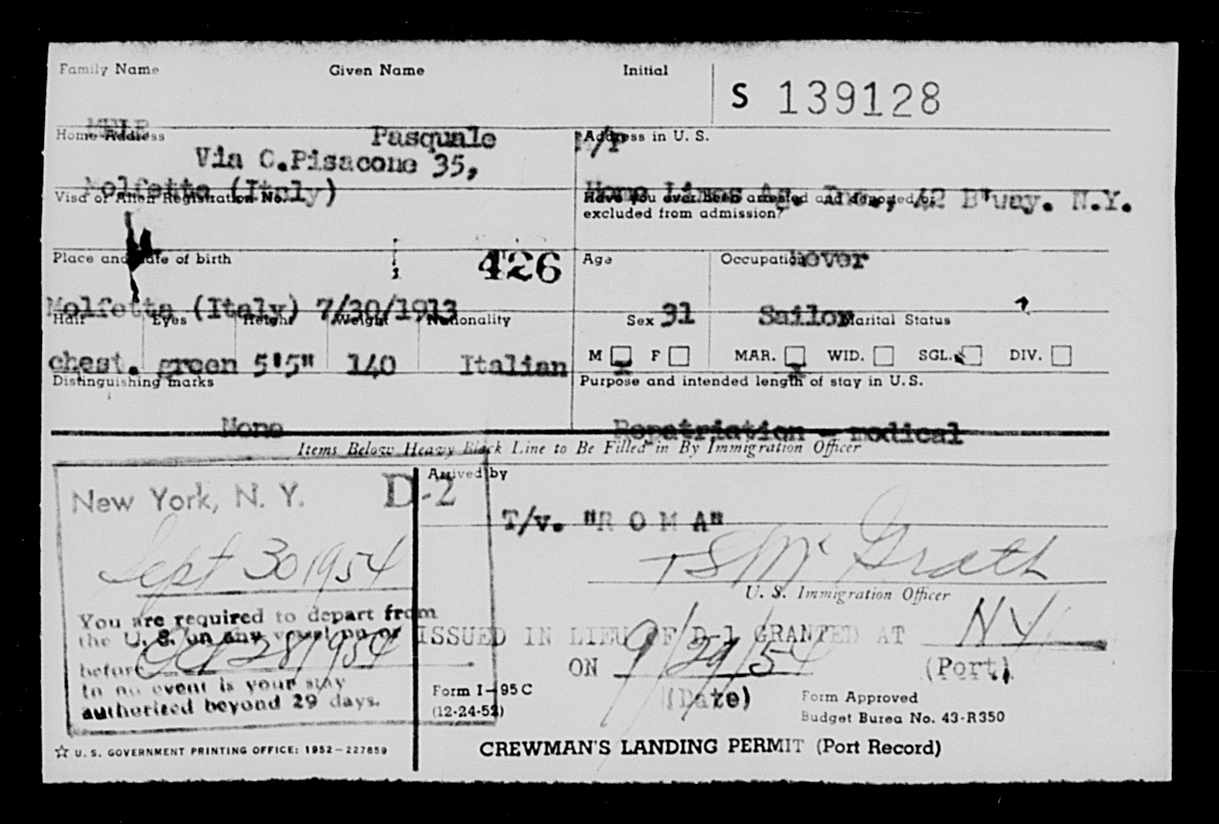 Family Name Given Name Initial
S 139128
Home Address Pasquale Address in U. S.
Via C.Pisacone 35, M/P
Molfetta (Italy) Home Lines Ag. Inc., 42 B'way. N.Y.
Visa or Alien Registration No. Have you ever been arrested and deported or
excluded from admission?
never
Place and date of birth 426 Age Occupation
Molfetta (Italy) 7/30/1913
Hair Eyes Height Weight Nationality Sex 31 Sailor Marital Status
chest. green 5'5" 140 Italian M F MAR. WID. SGL. DIV.
Distinguishing marks Purpose and intended length of stay in U. S.
None Repatriation - medical
Items Below Heavy Black Line to Be Filled in By Immigration Officer
Arrived by
New York, N. Y. D-2
T/v. "R O M A"
Sept 30 1954 T S McGrath
U. S. Immigration Officer
You are required to depart from
the U. S. on any vessel on or ISSUED IN LIEU OF D-1 GRANTED AT NY
before Oct 28 1954 ON 9/29/54 (Port)
In no event is your stay (Date)
authorized beyond 29 days.
Form I-95 C Form Approved
(12-24-52) Budget Bureo No. 43-R350
☆ U. S. GOVERNMENT PRINTING OFFICE: 1952-227859 CREWMAN'S LANDING PERMIT (Port Record)